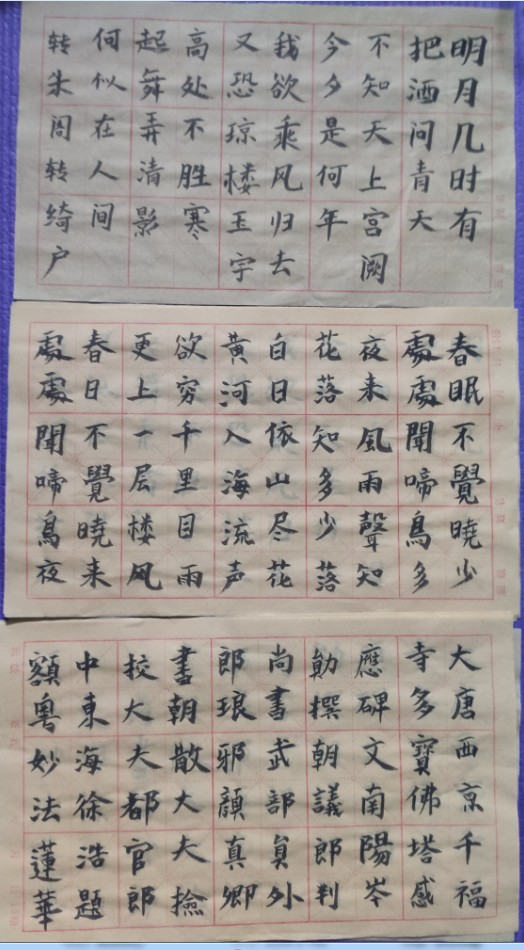 明月几时有
把酒问青天
不知天上宫阙
今夕是何年
我欲乘风归去
又恐琼楼玉宇
高处不胜寒
起舞弄清影
何似在人间
转朱阁转绮户
春眠不覺曉少
處處聞啼鳥多
夜来風雨聲知
花落知多少落
白日依山尽花
黄河入海流声
欲穷千里目雨
更上一层楼风
春日不覺曉来
處處聞啼鳥夜
大唐西京千福
寺多寶佛塔感
應碑文南陽岑
勛撰朝議郎判
尚書武部員外
郎琅邪顏真卿
書朝散大夫撿
校大夫都官郎
中東海徐浩題
額粵妙法蓮華